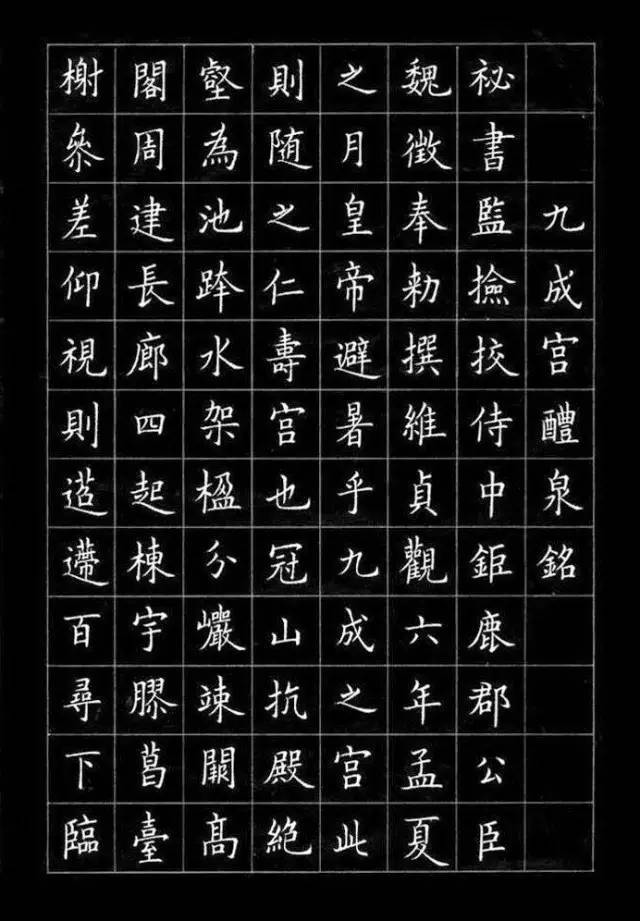 九成宫醴泉銘
祕書監撿挍侍中鉅鹿郡公臣
魏徵奉勑撰維貞觀六年孟夏
之月皇帝避暑乎九成之宫此
則随之仁壽宫也冠山抗殿絶
壑為池跨水架楹分巖竦闕髙
閣周建長廊四起棟宇膠葛臺
榭叅差仰視則迢遰百尋下臨